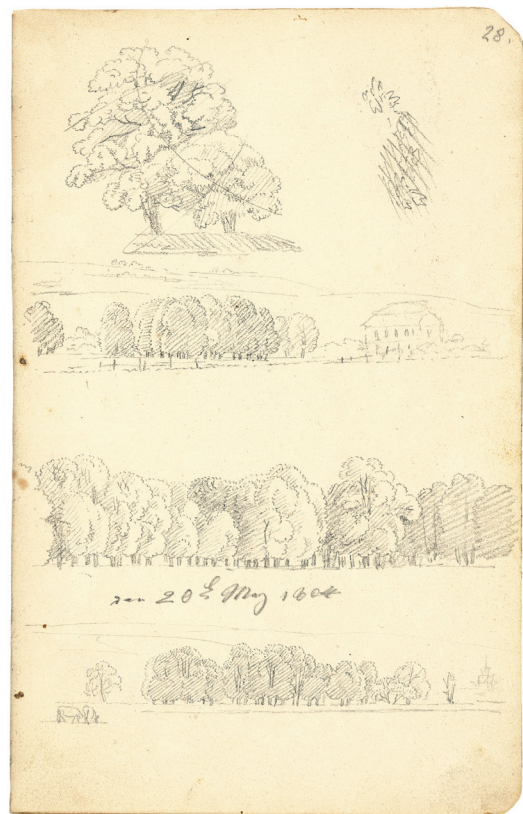 28.
den 20t May 1804